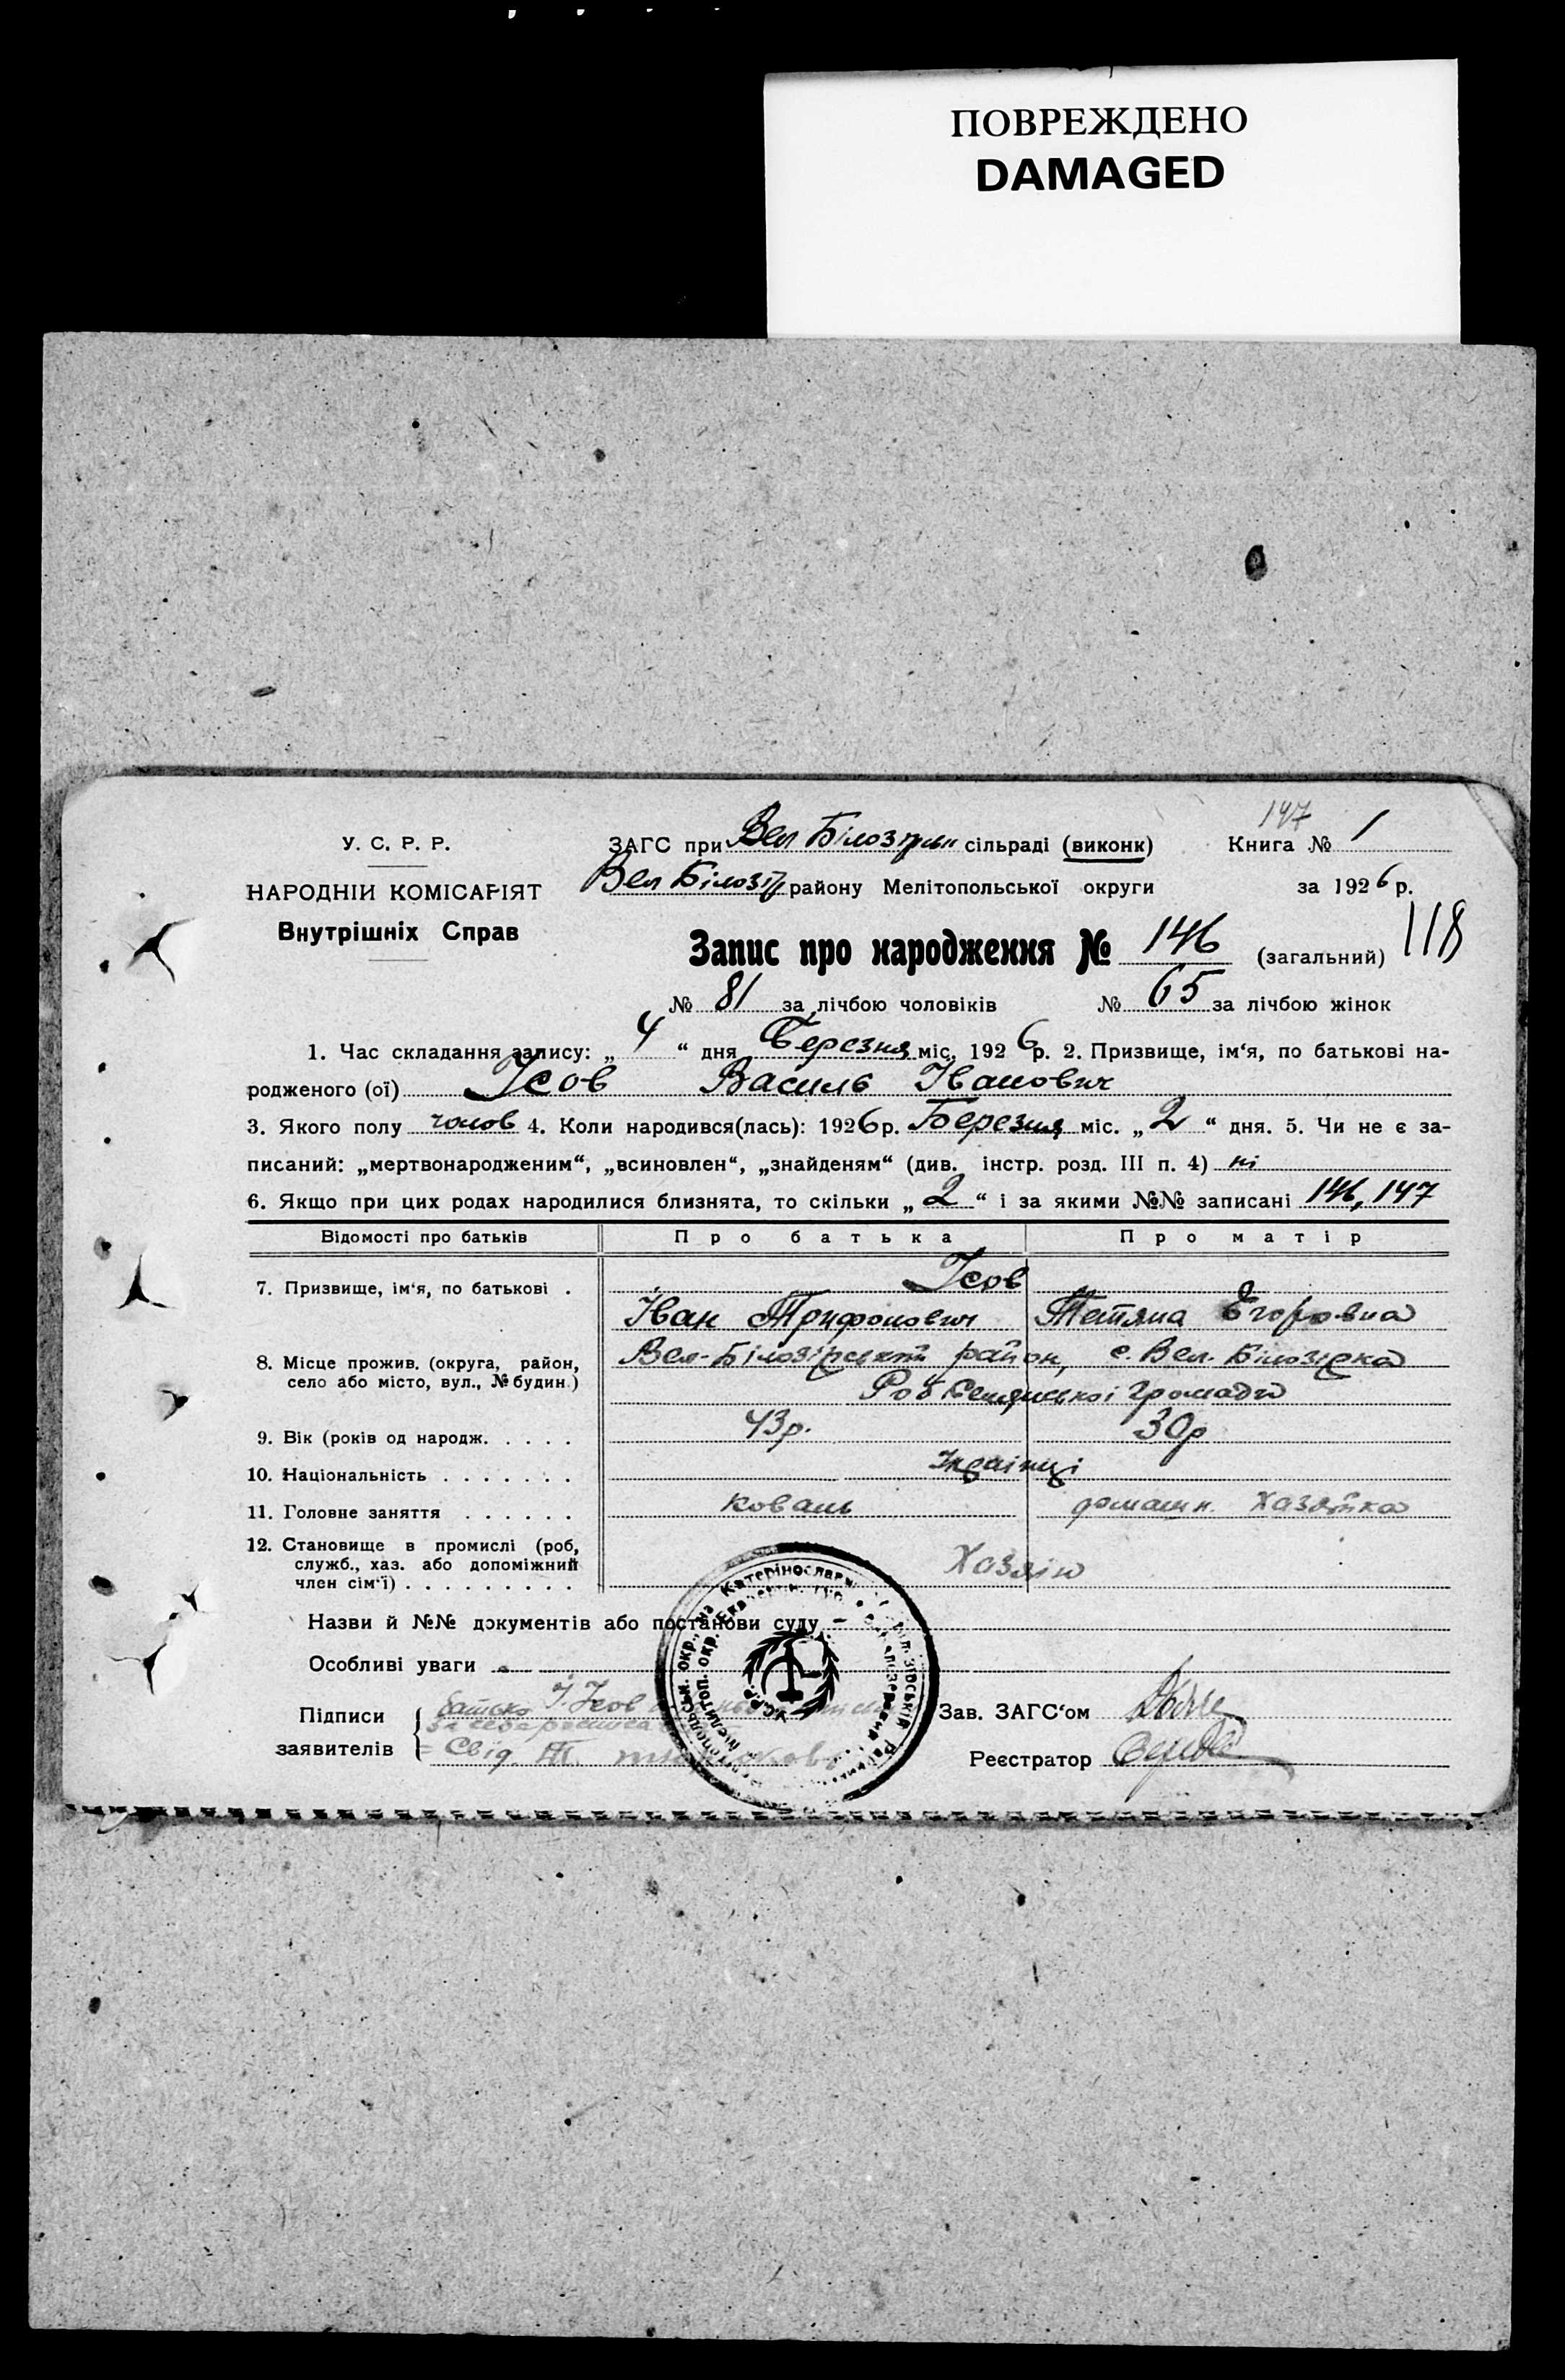 ПОВРЕЖДЕНО
DAMAGED
147
У. С. Р. Р.
ЗАГС при Вел Білозірськ сільраді (виконк) Книга № 1
НАРОДНІЙ КОМІСАРІЯТ
Вел Білозір району Мелітопольської округи за 1926 р.
Внутрішніх Справ
Запис про народження № 146 (загальний) 118
№ 81 за лічбою чоловіків № 65 за лічбою жінок
1. Час складання запису: „ 4 “ дня Березня міс. 1926 р. 2. Призвище, ім‘я, по батькові на-
родженого (ої) Усов Василь Іванович
3. Якого полу чолов 4. Коли народився(лась): 1926 р. Березня міс. „ 2 “ дня. 5. Чи не є за-
писаний: „мертвонародженим“, „всиновлен“, „знайденям“ (див. інстр. розд. III п. 4) ні
6. Якщо при цих родах народилися близнята, то скільки „ 2 “ і за якими №№ записані 146, 147
Відомості про батьків Про батька Про матір
7. Призвище, ім‘я, по батькові . Усов
Іван Трифонович Тетяна Егоровна
8. Місце прожив. (округа, район, село або місто, вул., № будин.) Вел-Білозірський район, с. Вел. Білозірка
Роб Селянської громади
9. Вік (років од народж. . . . . 43р. 30р
10. Національність . . . . . . . Українці
11. Головне заняття . . . . . . коваль домашн. хазяйка
12. Становище в промислі (роб, служб., хаз. або допоміжний член сім‘ї) . . . . . . . . . Хазяін
Назви й №№ документів або постанови суду —
Особливі уваги
Підписи заявителів батько І. Усов
Свід. Т.
Зав. ЗАГС‘ом
Реєстратор
УСРР